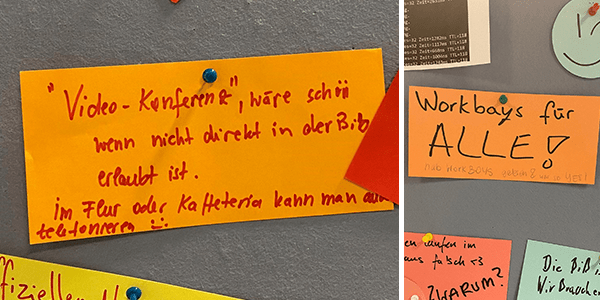 "Video-Konferenz", wäre schön
wenn nicht direkt in der Bib
erlaubt ist.
im Flur oder Kaffeterra kann man auch
telefonieren
ffiziellen
Zeit=1117ms TTL=118
Workbays für
ALLE!
en laufen im
aus falsch <3
WARUM?
Die Bib
Wir brauchen